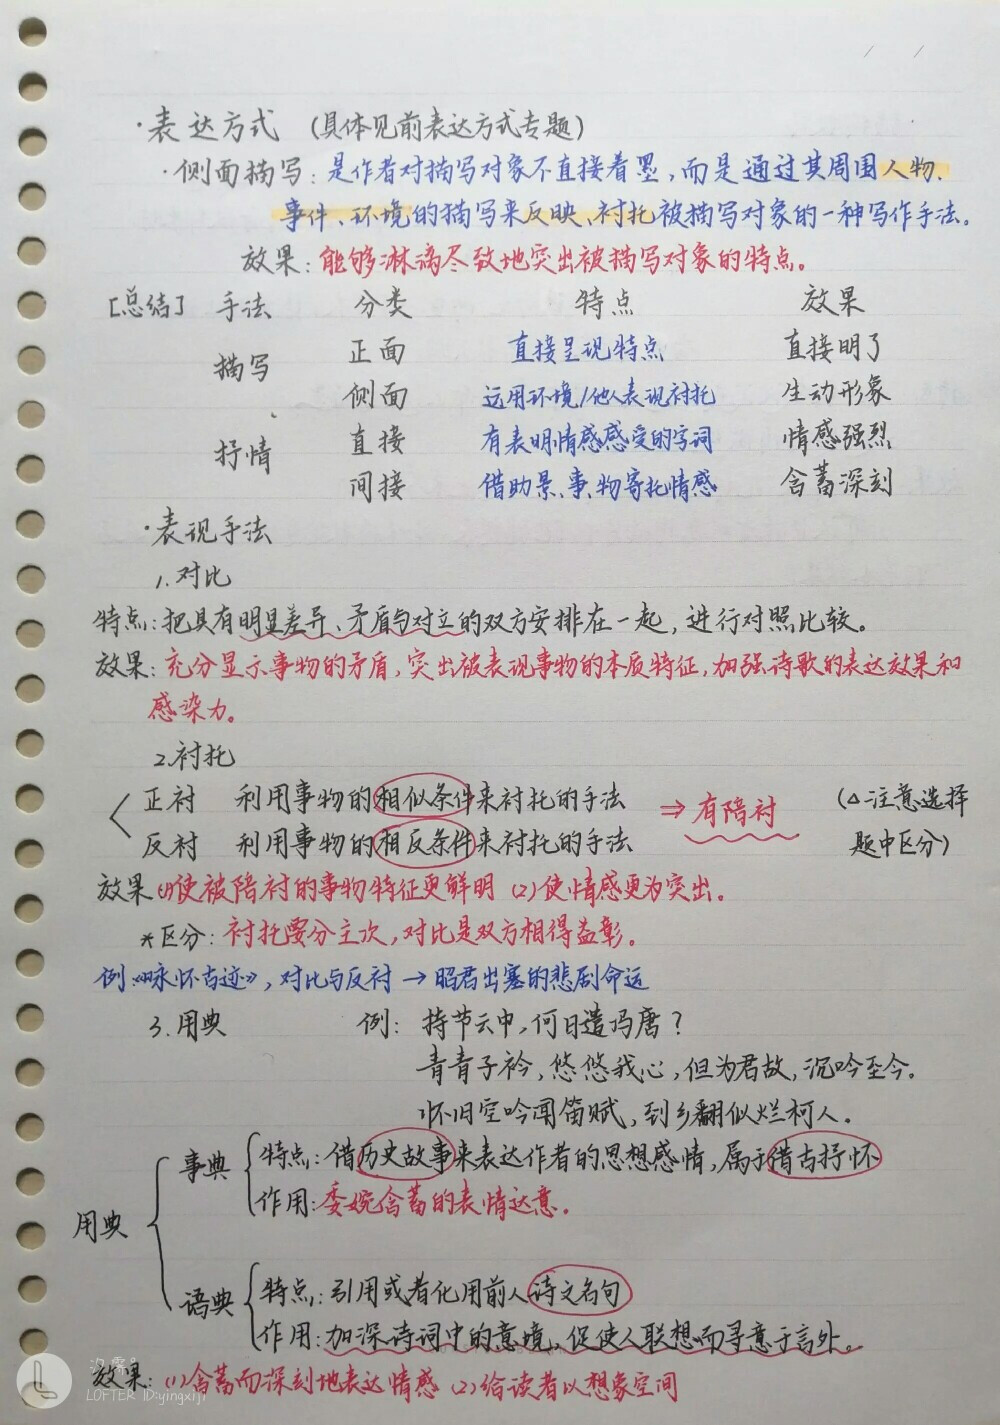 ·表达方式 (具体见前表达方式专题)
·侧面描写:是作者对描写对象不直接着墨,而是通过其周围人物、
事件、环境的描写来反映、衬托被描写对象的一种写作手法。
效果:能够淋漓尽致地突出被描写对象的特点。
[总结] 手法 分类 特点 效果
描写 正面 直接呈现特点 直接明了
侧面 运用环境/他人表现衬托 生动形象
抒情 直接 有表明情感感受的字词 情感强烈
间接 借助景、事、物寄托情感 含蓄深刻
·表现手法
1.对比
特点:把具有明显差异、矛盾与对立的双方安排在一起,进行对照比较。
效果:充分显示事物的矛盾,突出被表现事物的本质特征,加强诗歌的表达效果和
感染力。
2.衬托
正衬 利用事物的相似条件来衬托的手法 ⇒有陪衬 (△注意选择
反衬 利用事物的相反条件来衬托的手法 题中区分)
效果(1)使被陪衬的事物特征更鲜明 (2)使情感更为突出。
*区分:衬托要分主次,对比是双方相得益彰。
例:《咏怀古迹》,对比与反衬→昭君出塞的悲剧命运
3.用典 例: 持节云中,何日遣冯唐?
青青子衿,悠悠我心,但为君故,沉吟至今。
怀旧空吟闻笛赋,到乡翻似烂柯人。
事典 特点:借历史故事来表达作者的思想感情,属于借古抒怀
作用:委婉含蓄的表情达意。
用典
语典 特点:引用或者化用前人诗文名句
作用:加深诗词中的意境,促使人联想而寻意于言外。
效果:(1)含蓄而深刻地表达情感 (2)给读者以想象空间
LOFTER ID:yingxiji